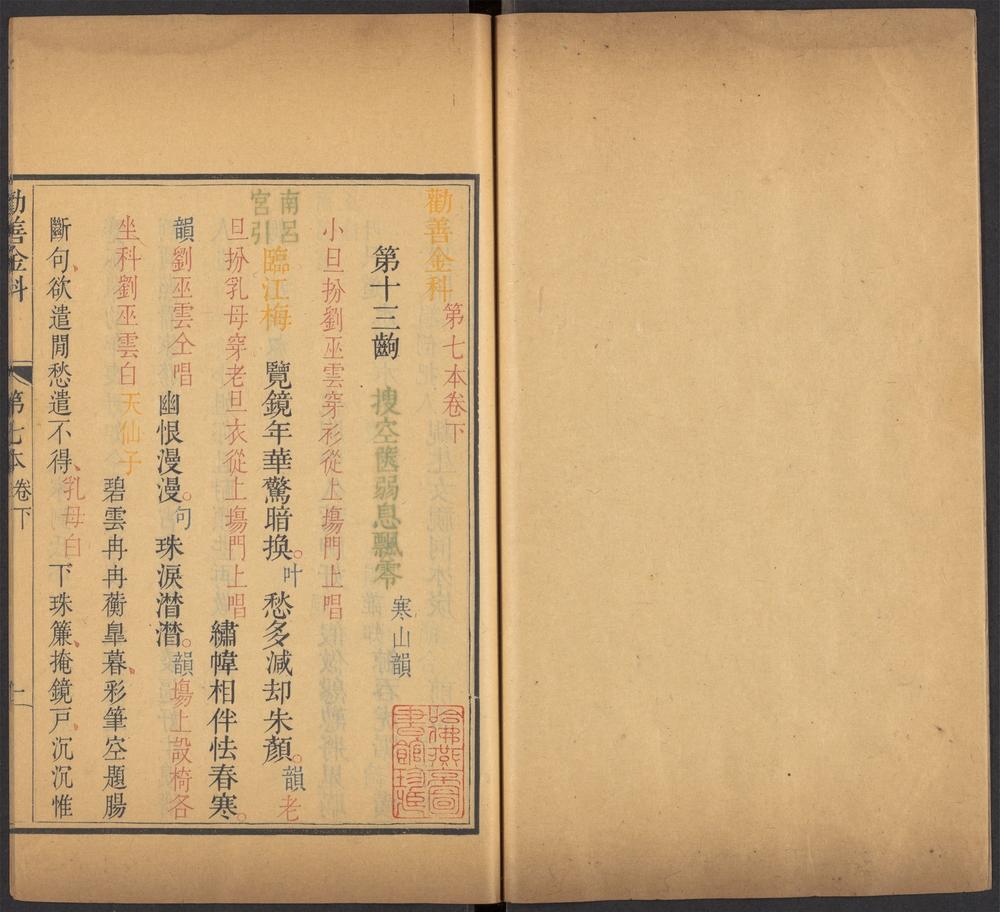 勸善金科
第七本卷下
第十三齣　搜空篋弱息飄零　寒山韻
小旦扮劉巫雲穿衫從上塲門上唱
南呂宮引　臨江梅　覽鏡年華驚暗換。叶　愁多減却朱顏。韻　老
旦扮乳母穿老旦衣從上塲門上唱　繡幃相伴怯春寒。
韻　劉巫雲仝唱　幽恨漫漫。句　珠淚潸潸。韻　塲上設椅各
坐科劉巫雲白　天仙子　碧雲冉冉蘅臯暮、彩筆空題腸
斷句、欲遣閒愁遣不得、乳母白　下珠簾、掩鏡戸、沉沉惟
勸善金科　第七本卷下
哈佛燕京圖書館珍藏